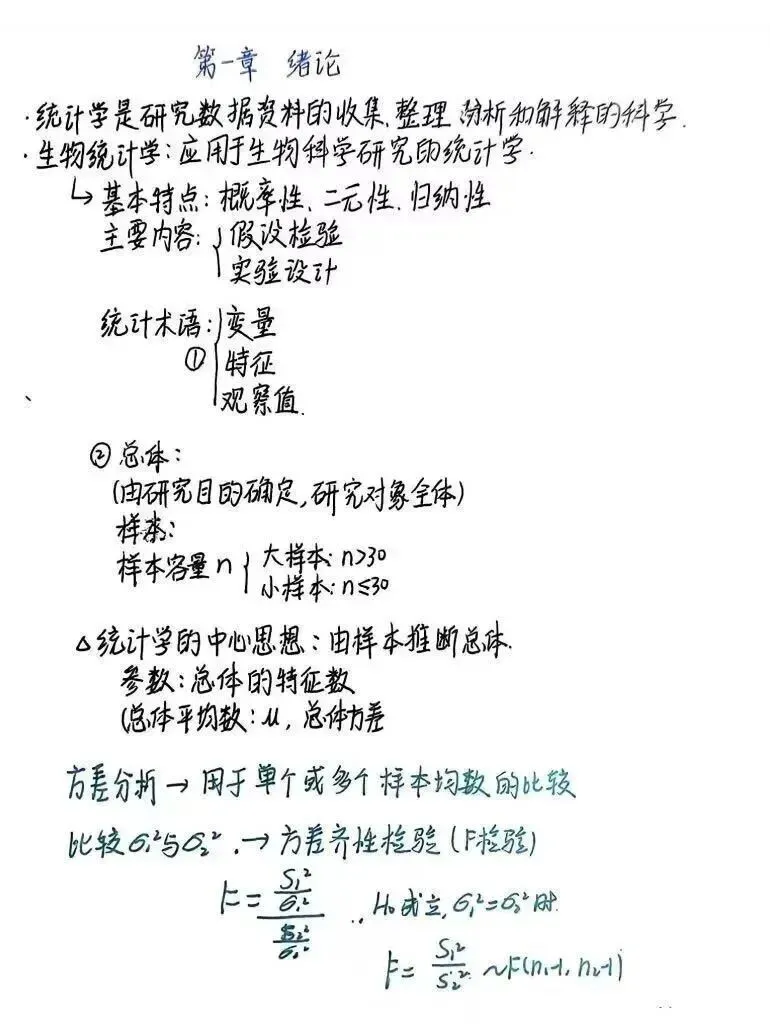 第一章 绪论
·统计学是研究数据资料的收集、整理、分析和解释的科学.
·生物统计学:应用于生物科学研究的统计学.
↳基本特点:概率性、二元性、归纳性
主要内容:{假设检验
实验设计
统计术语:{变量
① 特征
观察值.
②总体:
(由研究目的确定,研究对象全体)
样本:
样本容量n{大样本:n>30
小样本:n≤30
△统计学的中心思想:由样本推断总体.
参数:总体的特征数
(总体平均数:μ,总体方差
方差分析→用于单个或多个样本均数的比较
比较σ₁²与σ₂².→方差齐性检验(F检验)
F=(S₁²/σ₁²)/(S₂²/σ₂²) ..H₀成立,σ₁²=σ₂²时
F=S₁²/S₂²~F(n₁-1,n₂-1)